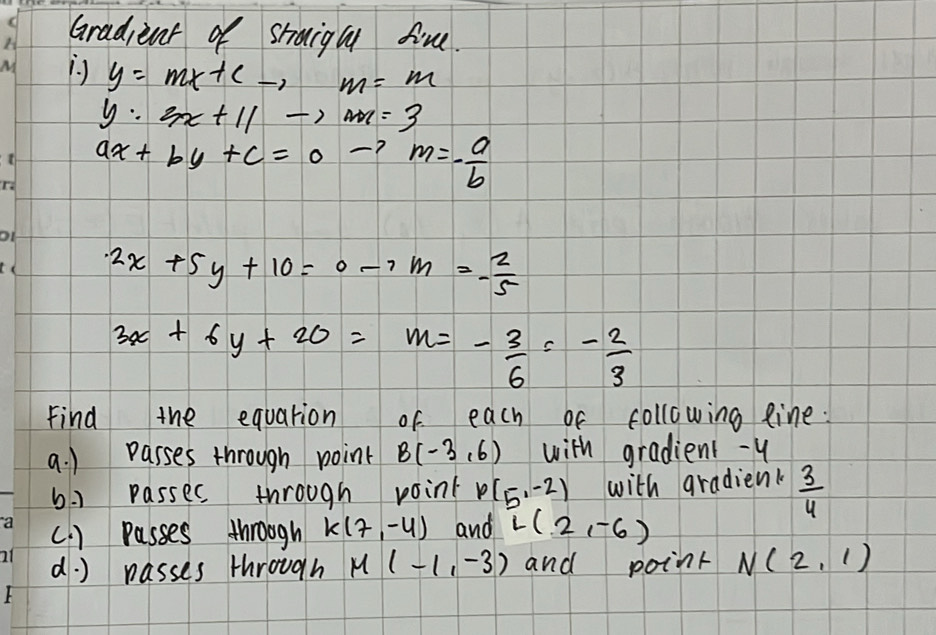 Gradient of straight line.
i.) y = mx + c → m = m
y : 3x + 11 → m = 3
ax + by + c = 0 → m = - a/b
2x + 5y + 10 = 0 → m = - 2/5
3x + 6y + 20 = m = - 3/6 = - 2/3
Find the equation of each of following line:
a.) Passes through point B(-3,6) with gradient -4
b.) Passes through point P(5,-2) with gradient 3/4
c.) Passes through K(7,-4) and L(2,-6)
d.) passes through M (-1,-3) and point N(2,1)